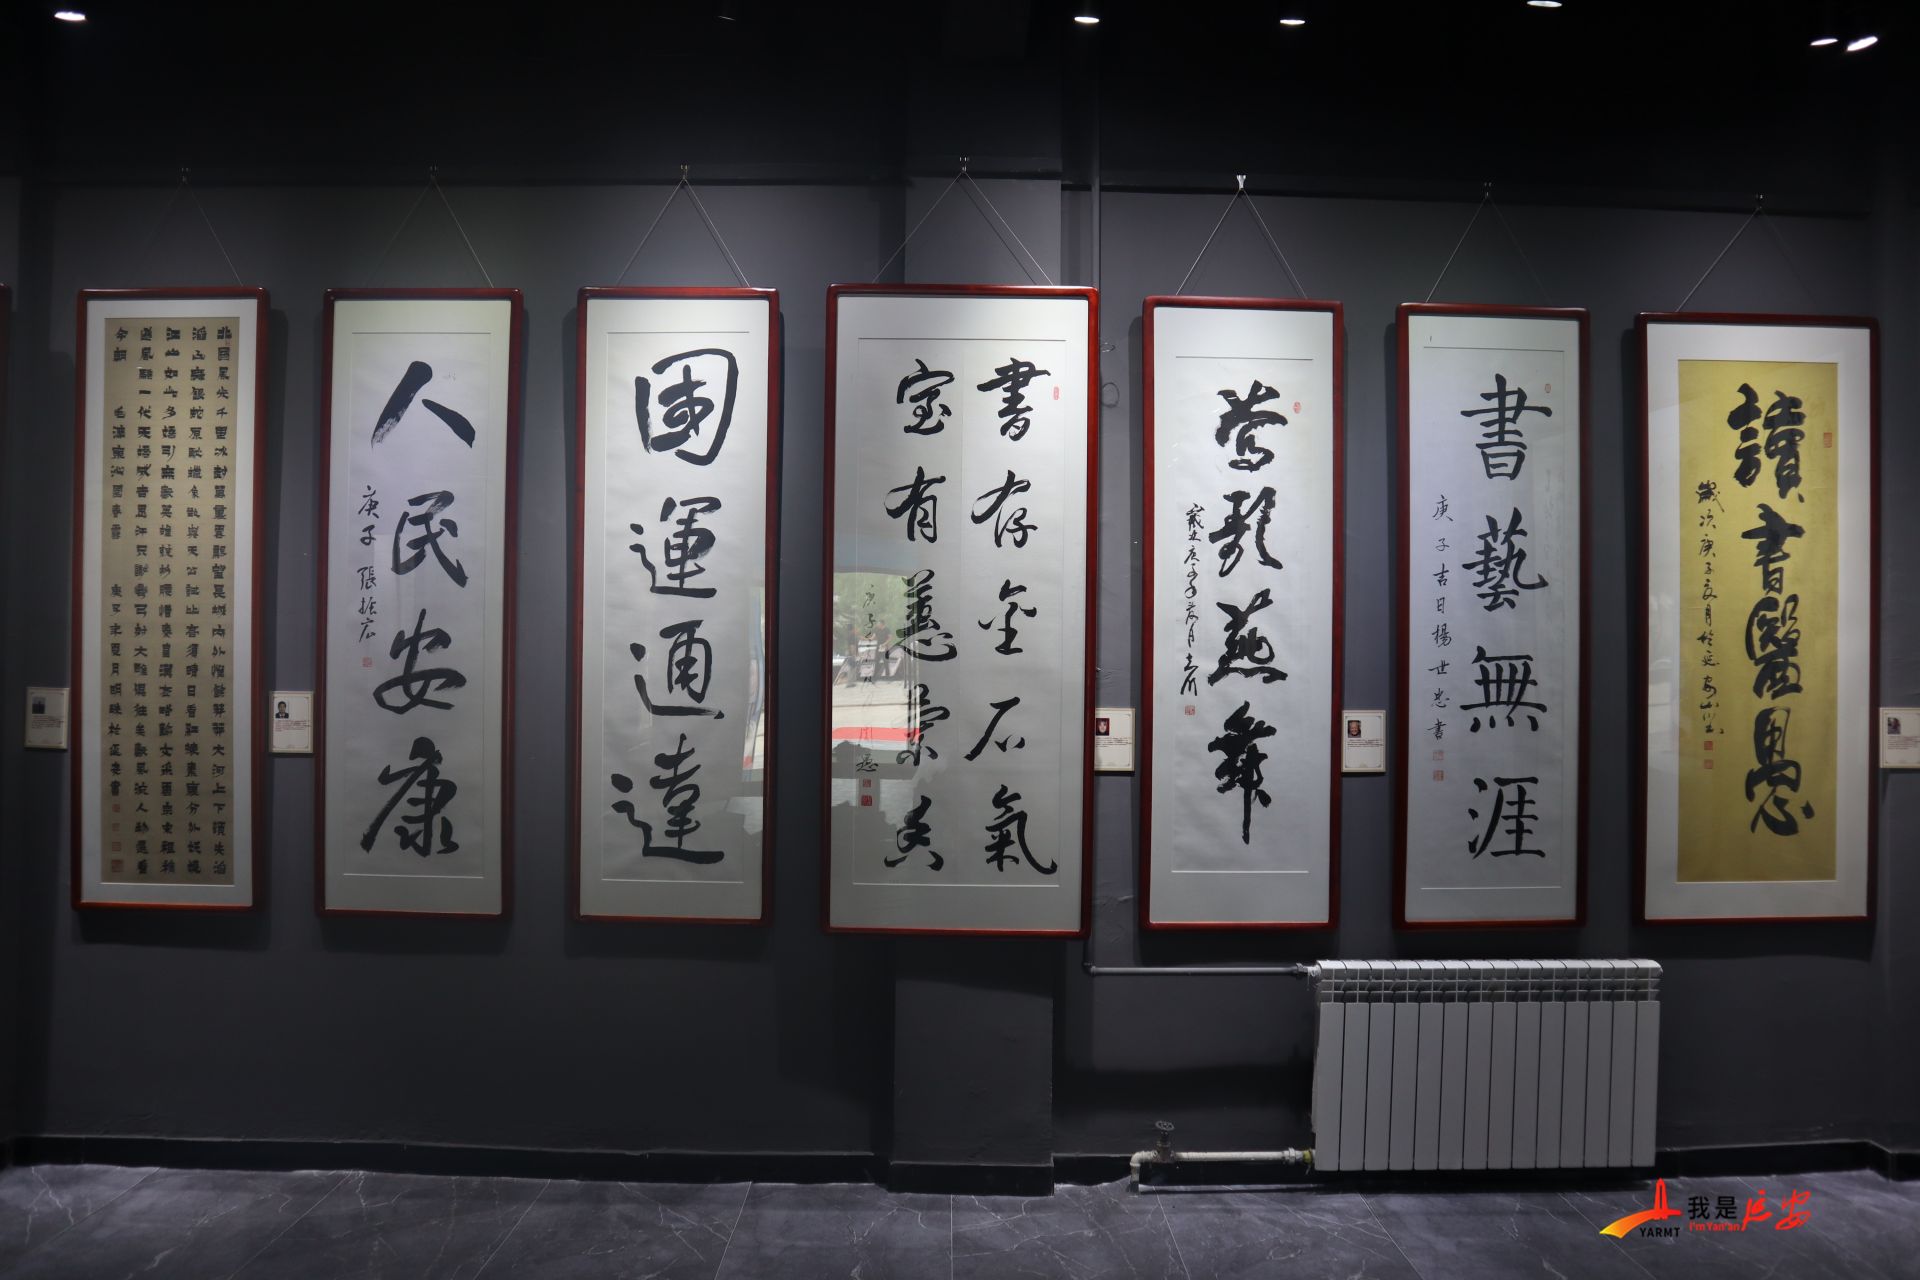 讀書醫愚
歲次庚子夏月於延安山川書
書藝無涯
庚子吉日楊世忠書
莺歌燕舞
書存金石氣
室有蕙蘭香
庚子
國運通達
人民安康
庚子 張振宏
北國風光千里冰封萬里雪飄望長城內外惟餘莽莽大河上下頓失滔
滔山舞銀蛇原馳蠟象欲與天公試比高須晴日看紅裝素裹分外妖嬈
江山如此多嬌引無數英雄競折腰惜秦皇漢武略輸文采唐宗宋祖稍
遜風騷一代天驕成吉思汗只識彎弓射大雕俱往矣數風流人物還看
今朝 毛澤東沁園春雪 庚子年夏月明珠於延安書
我是延安
I'm Yan'an
YARMT